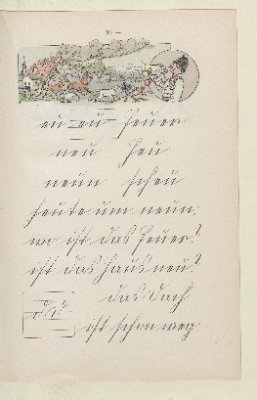 eu eu feuer
neu heu
neun scheu
heute um neun
wo ist das feuer?
ist das haus neu?
das dach
ist schon weg